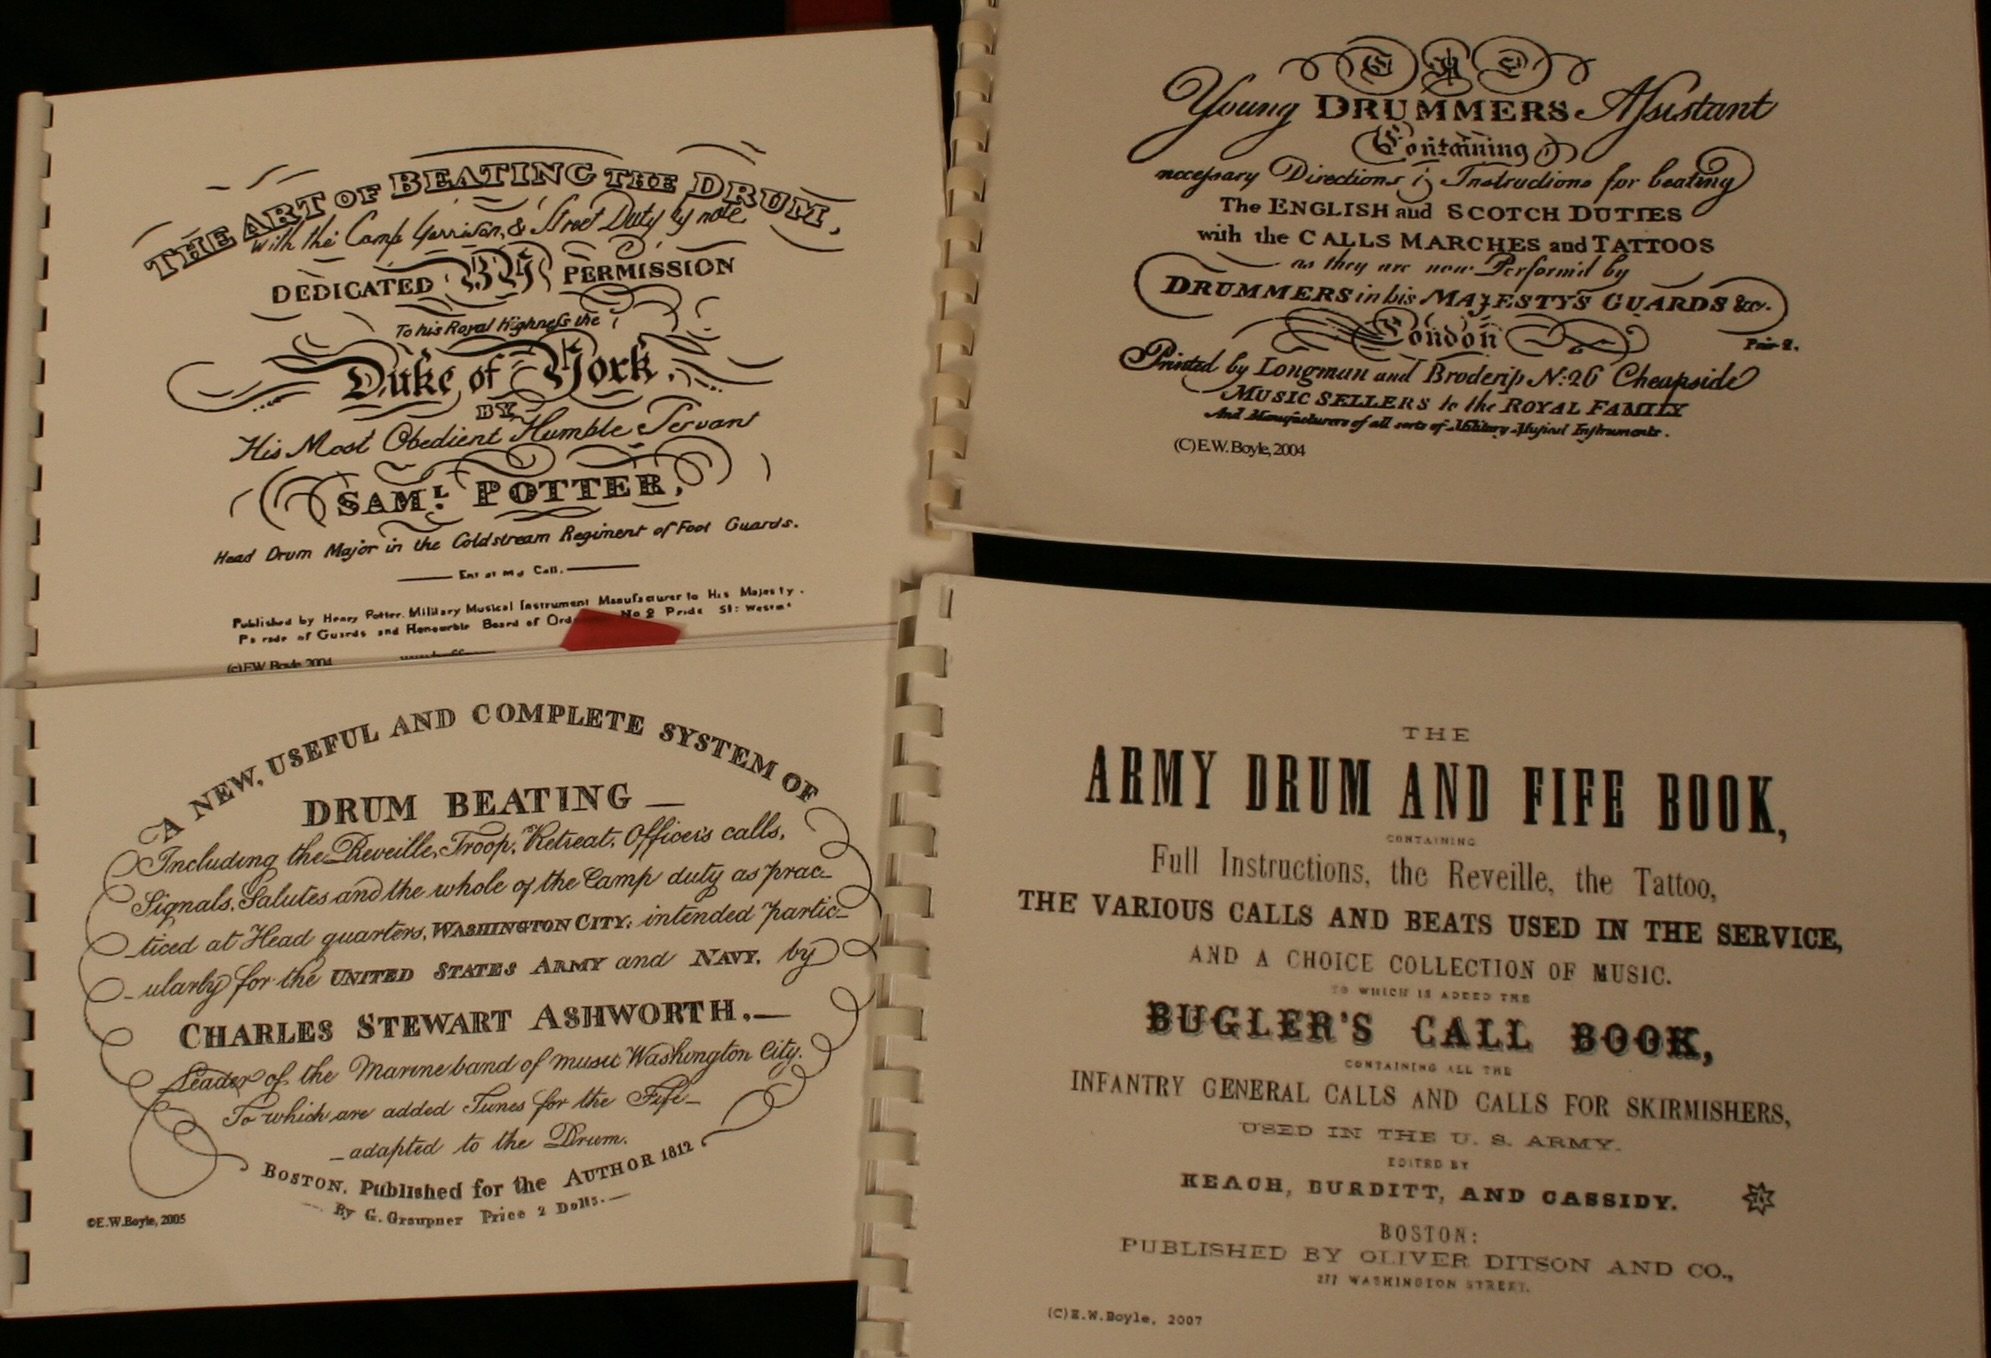 THE ART OF BEATING THE DRUM,
with the Camp Garrison, & Street Duty by note
DEDICATED BY PERMISSION
To his Royal Highness the
Duke of York.
BY
His Most Obedient Humble Servant
SAML. POTTER,
Head Drum Major in the Coldstream Regiment of Foot Guards.
Published by Henry Potter. Military Musical Instrument Manufacturer to His Majesty.
Parade of Guards and Honourble Board of Ord No 2 Pride St: Westmr
(c) E.W. Boyle 2004
THE
Young DRUMMERS Assistant
Containing
necessary Directions & Instructions for beating
The ENGLISH and SCOTCH DUTIES
with the CALLS MARCHES and TATTOOS
as they are now Perform'd by
DRUMMERS in his MAJESTY'S GUARDS &c.
London
Printed by Longman and Broderip No: 26 Cheapside
MUSIC SELLERS to the ROYAL FAMILY
And Manufacturers of all sorts of Military Musical Instruments.
(C) E.W. Boyle, 2004
A NEW, USEFUL AND COMPLETE SYSTEM OF
DRUM BEATING —
Including the Reveille, Troop, Retreat, Officers calls,
Signals, Salutes and the whole of the Camp duty as prac-
-ticed at Head quarters, WASHINGTON CITY; intended partic-
-ularly for the UNITED STATES ARMY and NAVY, by
CHARLES STEWART ASHWORTH, —
Leader of the Marine band of music Washington City.
To which are added Tunes for the Fife
-adapted to the Drum.
BOSTON, Published for the AUTHOR 1812
By G. Graupner Price 2 Dolls.
©E.W.Boyle, 2005
THE
ARMY DRUM AND FIFE BOOK,
CONTAINING
Full Instructions, the Reveille, the Tattoo,
THE VARIOUS CALLS AND BEATS USED IN THE SERVICE,
AND A CHOICE COLLECTION OF MUSIC.
TO WHICH IS ADDED THE
BUGLER'S CALL BOOK,
CONTAINING ALL THE
INFANTRY GENERAL CALLS AND CALLS FOR SKIRMISHERS,
USED IN THE U. S. ARMY.
EDITED BY
KEACH, BURDITT, AND CASSIDY.
BOSTON:
PUBLISHED BY OLIVER DITSON AND CO.,
277 WASHINGTON STREET.
(C)E.W.Boyle, 2007